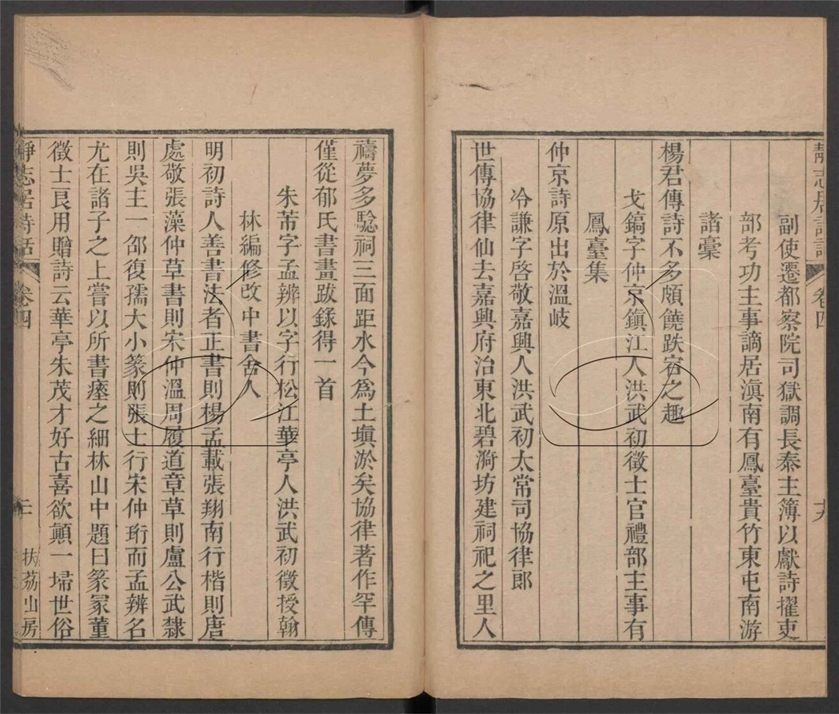 靜志居詩話 卷四 十九
副使遷都察院司獄調長泰主簿以獻詩擢吏
部考功主事謫居滇南有鳳臺貴竹東屯南游
諸稾
楊君傳詩不多頗饒跌宕之趣
戈鎬字仲京鎮江人洪武初徵士官禮部主事有
鳳臺集
仲京詩原出於溫岐
冷謙字啓敬嘉興人洪武初太常司協律郎
世傳協律仙去嘉興府治東北碧漪坊建祠祀之里人
禱夢多驗祠三面距水今爲土塡淤矣協律著作罕傳
僅從郁氏書畫跋錄得一首
朱芾字孟辨以字行松江華亭人洪武初徵授翰
林編修改中書舍人
明初詩人善書法者正書則楊孟載張翔南行楷則唐
處敬張藻仲草書則宋仲溫周履道章草則盧公武隸
則吳主一邵復孺大小篆則張士行宋仲珩而孟辨名
尤在諸子之上嘗以所書瘞之細林山中題曰篆冢董
徵士良用贈詩云華亭朱茂才好古喜欲顚一埽世俗
靜志居詩話 卷四 二 扶荔山房